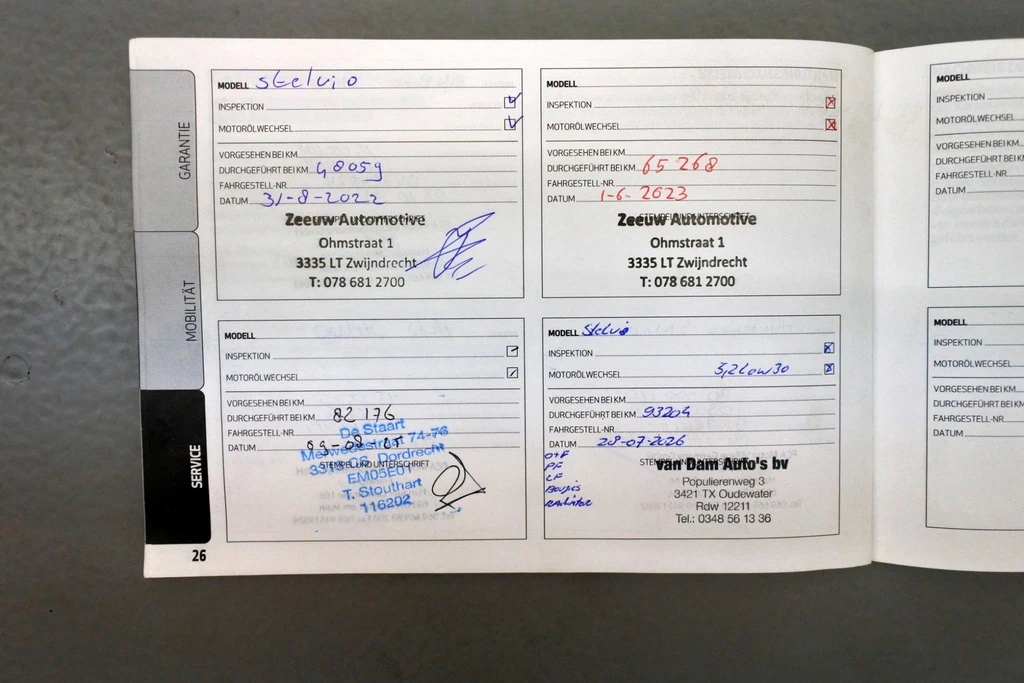 GARANTIE
MOBILITÄT
SERVICE
26
MODELL Stelvio
INSPEKTION
MOTORÖLWECHSEL
VORGESEHEN BEI KM
DURCHGEFÜHRT BEI KM 48059
FAHRGESTELL-NR
DATUM 31-8-2022
Zeeuw Automotive
Ohmstraat 1
3335 LT Zwijndrecht
T: 078 681 2700
MODELL
INSPEKTION
MOTORÖLWECHSEL
VORGESEHEN BEI KM
DURCHGEFÜHRT BEI KM 65 268
FAHRGESTELL-NR
DATUM 1-6-2023
STEMPEL UND UNTERSCHRIFT
Zeeuw Automotive
Ohmstraat 1
3335 LT Zwijndrecht
T: 078 681 2700
MODELL
INSPEKTION
MOTORÖLWECHSEL
VORGESEHEN BEI KM
DURCHGEFÜHRT BEI KM 82 176
FAHRGESTELL-NR
DATUM 09-08
STEMPEL UND UNTERSCHRIFT
De Staart
Merwedestraat 74-76
Dordrecht
EM05E01
T. Stouthart
116202
MODELL Stelvio
INSPEKTION
MOTORÖLWECHSEL 5,2L 0W30
VORGESEHEN BEI KM
DURCHGEFÜHRT BEI KM 93204
FAHRGESTELL-NR
DATUM 28-07-2026
O+F
PF
LF
Bougis
van Dam Auto's bv
Populierenweg 3
3421 TX Oudewater
Rdw 12211
Tel.: 0348 56 13 36
MODELL
INSPEKTION
MOTORÖLWECHSEL
VORGESEHEN BEI KM
DURCHGEFÜHRT BEI KM
FAHRGESTELL-NR
DATUM
MODELL
INSPEKTION
MOTORÖLWECHSEL
VORGESEHEN BEI KM
DURCHGEFÜHRT BEI KM
FAHRGESTELL-NR
DATUM